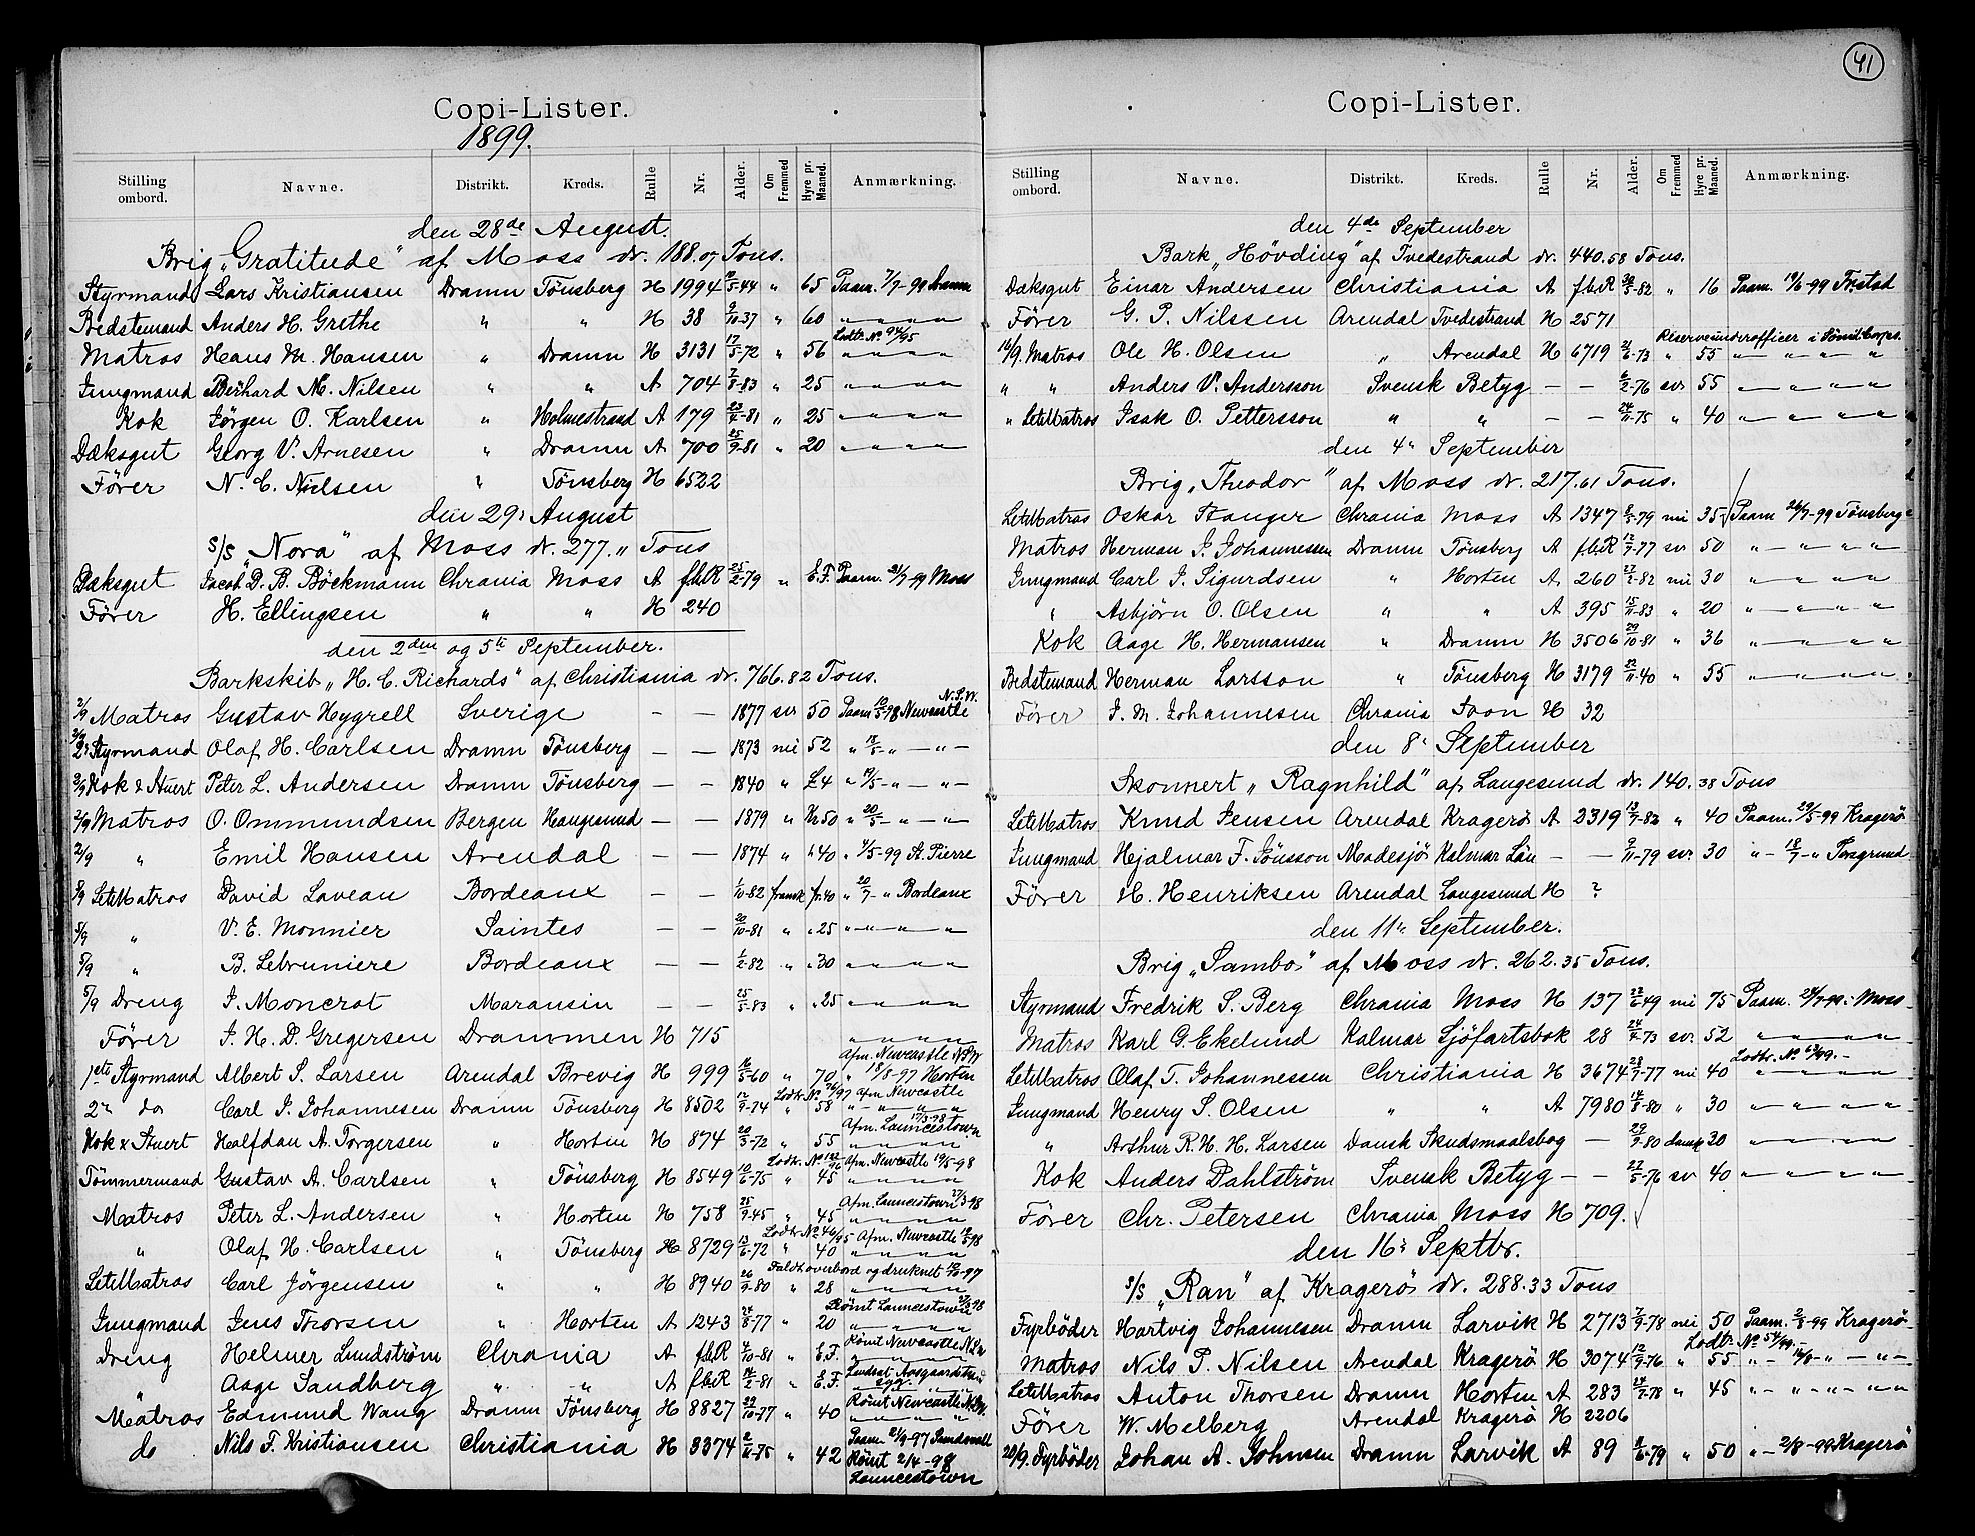 Copi-Lister.
1899.
Stilling ombord. Navne. Distrikt. Kreds. Rulle Nr. Alder. Om Fremmed Hyre pr. Maaned. Anmærkning.
den 28de August.
Brig „Gratitude“ af Moss dr. 188.07 Tons.
Styrmand Lars Kristiansen Dramn Tönsberg H 1994 5-44 „ 65 Paam. 7/9-99
Bedstemand Anders H. Grethe „ „ H 38 9/10-37 „ 60 „ „ „ „
Matros Hans M. Hansen „ Dramn H 3131 17/5-72 „ 56 Lodtr. No 94/95 „ „ „ „
Jungmand Berhard M. Nilsen „ „ A 704 7/8-83 „ 25 „ „ „ „
Kok Jörgen O. Karlsen „ Holmestrand A 179 23/4-81 „ 25 „ „ „ „
Dæksgut Georg V. Arnesen „ Dramn A 700 25/9-81 „ 20 „ „ „ „
Förer N. C. Nielsen „ Tönsberg H 6522
den 29. August
S/S „Nora“ af Moss dr. 277 „ Tons
Dæksgut Jacob D. B. Böckmann Chrania Moss A f.b.R 25/2-79 „ E.F. Paam. 21/7-99 Moss
Förer H. Ellingsen „ „ H 240
den 2den og 5te September.
Barkskib „H. C. Richards“ af Christiania dr. 766.82 Tons.
2/9 Matros Gustav Hygrell Sverige — — 1877 svr 50 Paam 10/5-98 Newcastle N.S.W.
2/9 2. Styrmand Olaf H. Carlsen Dramn Tönsberg — — 1873 nei 52 „ 18/5 „ — „ —
2/9 Kok & Stuert Peter L. Andersen Dramn Tönsberg — — 1840 „ £4 „ 19/5 — „ — „ —
2/9 Matros O. Ommundsen Bergen Haugesund — — 1879 „ Kr 50 „ 20/5 — „ — „ —
2/9 „ Emil Hansen Arendal — — 1874 „ „ 40 „ 7/5-99 St. Pierre
5/9 LetMatros David Laveau Bordeaux — — 1/10-82 fransk fr. 40 „ 20/7 - „ Bordeaux
5/9 „ V. E. Monnier Saintes — — 20/10-81 „ „ 25 „ „ „ „
5/9 „ B. Lebruniere Bordeaux — — 1/2-82 „ „ 30 „ „ „ „
5/9 Dreng J. Moncrot Maransin — — 25/5-83 „ „ 25 „ „ „ „
Förer J. H. D. Gregersen Drammen H 715 „ „ „ „
1ste Styrmand Albert S. Larsen Arendal Brevig H 999 16/5-60 „ 70 Afm. Newcastle N.S.W „ 18/8-97 Horten
2n do Carl J. Johannesen Dramn Tönsberg H 8502 12/9-74 „ 58 Lodtr. No 76/97 Afm Newcastle
Kok & Stuert Halfdan A. Torgersen „ Horten H 874 20/5-72 „ 55 Afm. Launcestown 17/3-98 „ „ „ „
Tömmermand Gustav A. Carlsen „ Tönsberg H 8549 10/6-75 „ 45 Afm. Newcastle 19/5-98 „ „ „ „
Matros Peter L. Andersen „ Horten H 758 25/9-45 „ 45 Afm. Launcestown 27/3-98 „ „ „ „
„ Olaf H. Carlsen „ Tönsberg H 8729 13/6-72 „ 40 Lodtr. No 46/95 Afm. Newcastle 18/5-98 „ „ „ „
LetMatros Carl Jörgensen „ „ H 8940 26/9-80 „ 28 Faldt overbord og druknet 12/10-97 „ „ „ „
Jungmand Jens Thorsen „ Horten A 1243 24/8-77 „ 20 Römt Launcestown „ „ „ „
Dreng Helmer Lundström Chrania A f.b.R 7/10-81 „ E.F. Römt Newcastle N.S.W
„ Aage Sandberg „ „ A f.b.R 14/2-81 „ E.F.
Matros Edmund Wang Dramn Tönsberg H 8827 29/10-77 „ 40 Römt Newcastle N.S.W.
do Nils F. Kristiansen Christiania H 3374 2/11-75 „ 42 Paam 21/9-97 Sundsvall Römt 2/4-98 Launcestown
41
Copi-Lister.
Stilling ombord. Navne. Distrikt. Kreds. Rulle Nr. Alder. Om Fremmed Hyre pr. Maaned. Anmærkning.
den 4de September
Bark „Hövding“ af Tvedestrand dr. 440.58 Tons.
Dæksgut Einar Andersen Christiania A f.b.R 5-82 „ 16 Paam. 19/6-99 Fr.stad
Förer G. P. Nilssen Arendal Tvedestrand H 2571
14/9. Matros Ole H. Olsen „ Arendal H 6719 21/6-73 „ 55 Reserveunderofficer i „ „ „ „
„ „ Anders V. Andersson Svensk Betyg — — 6/2-76 sv. 55 „ „ „ „
„ LetMatros Isak O. Pettersson „ „ — — 24/11-75 „ 40 „ „ „ „
den 4n September
Brig „Theodor“ af Moss dr. 217.61 Tons.
LetMatros Oskar Stanger Chrania Moss A 1347 8/5-79 nei 35 Paam 26/7-99 Tönsberg
Matros Herman J. Johannessen Dramn Tönsberg A f.b.R 12/9-77 sv 50 „ — „ „ „
Jungmand Carl J. Sigurdsen „ Horten A 260 27/2-82 nei 30 „ „ „ „
„ Asbjörn O. Olsen „ „ A 395 15/11-83 „ 20 „ „ „ „
Kok Aage H. Hermansen „ Dramn H 3506 29/10-81 „ 36 „ „ „ „
Bedstemand Herman Larsson „ Tönsberg H 3179 22/11-40 „ 55 „ „ „ „
Förer J. M. Johannesen Chrania Soon H 32
den 8n September
Skonnert „Ragnhild“ af Langesund dr. 140.38 Tons
LetMatros Knud Jensen Arendal Kragerö A 2319 13/9-82 „ 40 Paam. 29/5-99 Kragerö
Jungmand Hjalmar F. Jönsson Madesjö Kalmar Län — — 9/11-79 sv. 30 „ - 18/7 - „ Porsgrund
Förer H. Henriksen Arendal Langesund H ?
den 11n September.
Brig „Sambo“ af Moss dr. 262.35 Tons.
Styrmand Fredrik S. Berg Chrania Moss H 137 22/6-49 nei 75 Paam. 24/7-99. Moss
Matros Karl G. Ekelund Kalmar Sjöfartsbok 28 24/4-73 sv. 52 „ „ „ „
LetMatros Olaf T. Johannessen Christiania H 3674 28/9-77 nei 40 Lodtr. No 63/99. „ „ „ „
Jungmand Henry S. Olsen „ „ A 7980 14/8-80 „ 30 „ „ „ „
„ Arthur R. H. H. Larsen Dansk Skudsmaalsbog — 29/9-80 dansk 20 „ „ „ „
Kok Anders Dahlström Svensk Betyg — — 27/5-76 sv 40 „ „ „ „
Förer Chr. Petersen Chrania Moss H 709.
den 16n Septbr.
S/S „Ran“ af Kragerö dr. 288.33 Tons
Fyrböder Hartvig Johannesen Dramn Larvik H 2713 7/9-78 nei 50 Paam. 2/8-99 Kragerö
Matros Nils P. Nilsen Arendal Kragerö H 3074 12/9-76 „ 55 Lodtr. No 54/99.
LetMatros Anton Thorsen Dramn Horten A 283 24/7-78 „ 45 „ - „ - „ - „ „
Förer W. Melberg Arendal Kragerö H 2206
20/9. Fyrböder Johan A. Johnsen Dramn Larvik A 89 8/6-79 „ 50 „ - 2/8-99 Kragerö